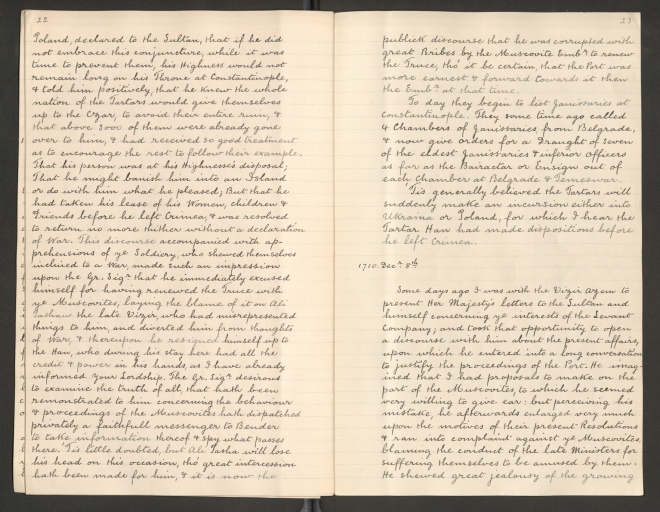 22
Poland, declared to the Sultan, that if he did
not embrace this conjuncture, while it was
time to prevent them, his Highness would not
remain long on his Throne at Constantinople,
& told him positively, that he knew the whole
nation of the Tartars would give themselves
up to the Czar, to avoid their entire ruin, &
that above 3000 of them were already gone
over to him, & had received so good treatment
as to encourage the rest to follow their example.
That his person was at his Highness's disposal;
That he might banish him into an Island
or do with him what he pleased; But that he
had taken his lease of his Women, children &
Friends before he left Crimea, & was resolved
to return no more thither without a declaration
of War. This discourse accompanied with ap-
prehensions of ye Soldiery, who shewed themselves
inclined to a War, made such an impression
upon the Gr. Sigr. that he immediately excused
himself for having renewed the Truce with
ye Muscovites, laying the blame of it on Ali
Pashaw the late Vizir, who had misrepresented
things to him, and diverted him from thoughts
of War, & thereupon he resigned himself up to
the Han, who during his stay here had all the
credit & power in his hands, as I have already
informed your Lordship. The Gr. Sigr. desirous
to examine the truth of all that hath been
remonstrated to him concerning the behaviour
& proceedings of the Muscovites hath dispatched
privately a faithfull messenger to Bender
to take information thereof & spy what passes
there. 'Tis little doubted, but Ali Pasha will lose
his head on this occasion, tho' great intercession
hath been made for him, & it is now the
23
publick discourse that he was corrupted with
great Bribes by the Muscovite Embr. to renew
the Truce, tho' it be certain, that the Port was
more earnest & forward towards it then
the Embr. at that time.
To day they begin to list Janissaries at
Constantinople. They some time ago called
4 Chambers of Janissaries from Belgrade,
& now give orders for a Draught of seven
of the eldest Janissaries & inferior officers
as far as the Bairactar or Ensign out of
each Chamber at Belgrade & Temeswar.
'Tis generally believed the Tartars will
suddenly make an incursion either into
Ukraina or Poland, for which I hear the
Tartar Han had made dispositions before
he left Crimea.
1710. Decr. 8th
Some days ago I was with the Vizir Azem to
present Her Majesty's letters to the Sultan and
himself concerning ye interests of the Levant
Company; and took that opportunity to open
a discourse with him about the present affairs,
upon which he entered into a long conversation
to justify the proceedings of the Port. He imag-
ined that I had proposals to make on the
part of the Muscovites, to which he seemed
very willing to give ear: but perceiving his
mistake, he afterwards enlarged very much
upon the motives of their present Resolutions
& ran into complaint against ye Muscovites,
blaming the conduct of the late Ministers for
suffering themselves to be amused by them.
He shewed great jealousy of the growing